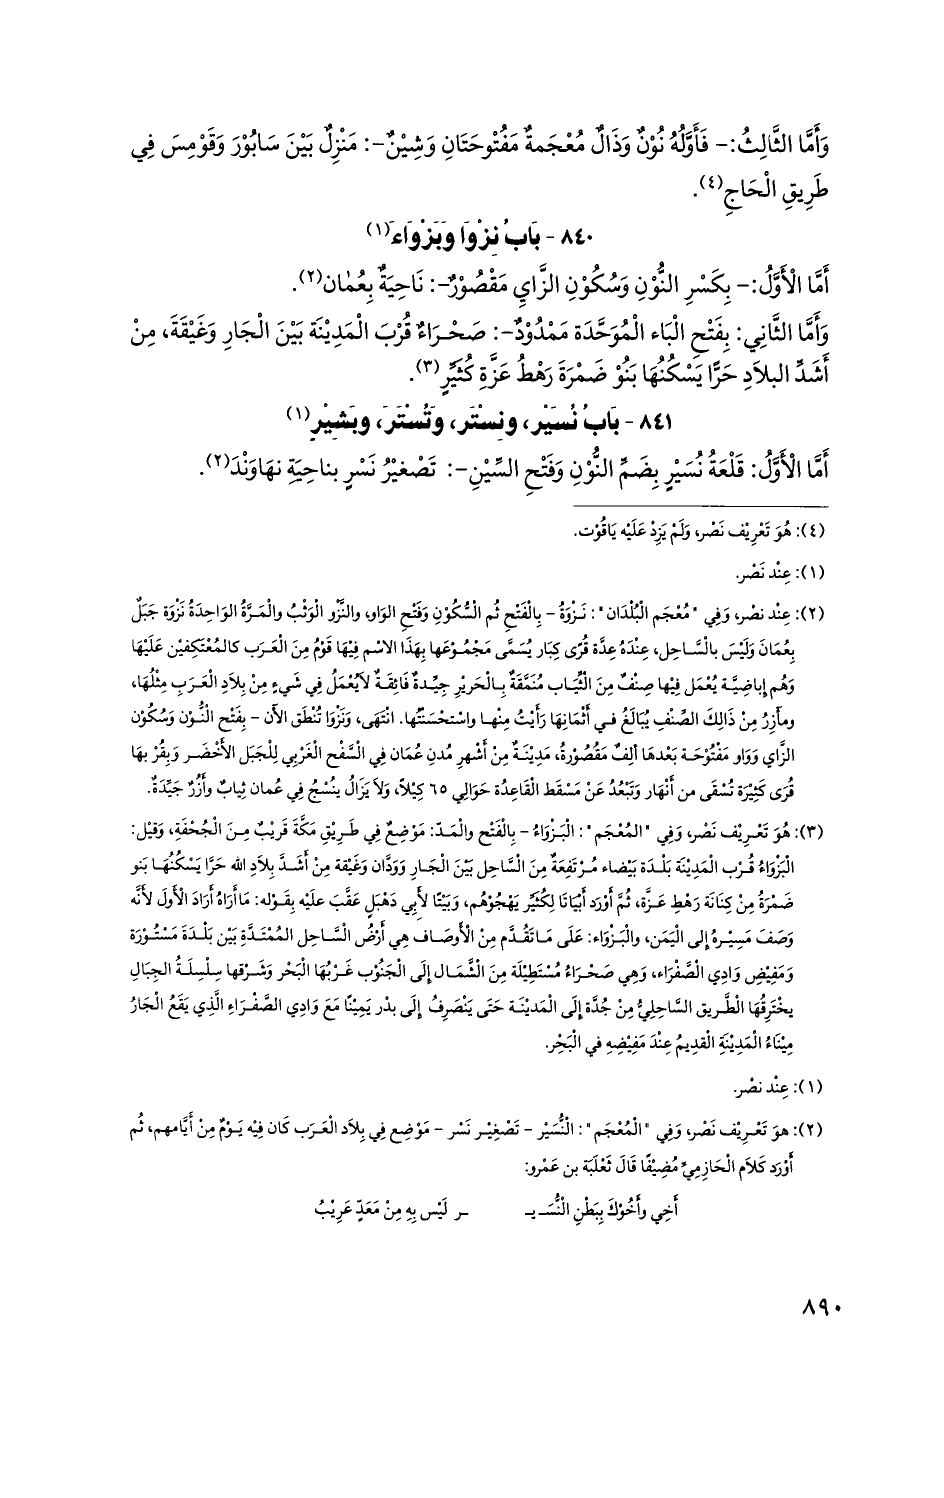 وَأَمَّا الثَّالِثُ:- فَأَوَّلُهُ نُوْنٌ وَذَالٌ مُعْجَمةٌ مَفْتُوحَتَانِ وَشِيْنٌ-: مَنْزِلٌ بَيْنَ سَابُوْرَ وَقَوْمِسَ فِي
طَرِيقِ الْحَاجِ(٤).
٨٤٠ - بَابُ نِزْوَا وَبَزْوَاءَ(١)
أَمَّا الْأَوَّلُ:- بِكَسْرِ النُّوْنِ وَسُكُوْنِ الزَّايِ مَقْصُوْرٌ-: نَاحِيَةٌ بِعُمَان(٢).
وَأَمَّا الثَّانِي: بِفَتْحِ الْبَاء الْمُوَحَّدَة مَمْدُوْدٌ-: صَحْرَاءُ قُرْبَ الْمَدِيْنَة بَيْنَ الْجَارِ وَغَيْقَةَ، مِنْ
أَشَدِّ البلاَدِ حَرًّا يَسْكُنُهَا بَنُوْ ضَمْرَةَ رَهْطُ عَزَّةِ كُثَيِّرٍ(٣).
٨٤١ - بَابُ نُسَيْر، ونِسْتَر، وَتُسْتَرَ، وبَشِيْرٍ(١)
أَمَّا الْأَوَّلُ: قَلْعَةُ نُسَيْرٍ بِضَمِّ النُّوْنِ وَفَتْحِ السِّيْنِ-: تَصْغِيْرُ نَسْرٍ بناحِيَةِ نهَاوَنْدَ(٢).
(٤): هُوَ تَعْرِيْف نَصْر، وَلَمْ يَزِدْ عَلَيْه يَاقُوْت.
(١): عِنْد نَصْر.
(٢): عِنْد نصْر، وَفي "مُعْجَم الْبُلْدَان": نَزْوَةُ - بِالْفَتْحِ ثُم السُّكُوْنِ وَفَتْحِ الوَاو، والنَّزْو الْوَثْبُ والْمَرَّةُ الوَاحِدَةُ نَزْوَة جَبَلٌ
بِعُمَانَ وَلَيْسَ بالسَّاحِل، عِنْدَهُ عِدَّة قُرًى كِبَار يُسَمَّى مَجْمُوْعَها بِهَذَا الاسْم فِيْهَا قَوْمٌ مِنَ الْعَرَب كالمُعْتَكِفيْن عَلَيْهَا
وَهُم إِباضِيَّة يُعْمَل فِيْها صِنْفٌ مِنَ الثِّيَاب مُنَمَّقَةٌ بِالْحَرِيْرِ جيِّدةٌ فَائِقةٌ لاَيُعْمَلُ فِي شَيءٍ مِنْ بِلاَدِ الْعَرَبِ مِثْلُهَا،
ومآزِرُ مِنْ ذَالِكَ الصِّنْفِ يُبَالَغُ فِي أَثْمَانِهَا رَأَيْتُ مِنْهَا واسْتحْسَنْتُها. انْتَهى، وَنَزْوَا تُنْطَق الآن - بِفَتْحِ النُّوْن وَسُكُوْن
الزَّاي وَوَاو مَفْتُوْحَة بَعْدهَا ألِفٌ مَقْصُوْرةٌ، مَدِيْنَةٌ مِنْ أَشْهرِ مُدنِ عُمَان فِي السَّفْح الْغَرْبي لِلْجَبَل الأَخْضَر وَبِقُرْ بهَا
قُرَى كَثِيْرَة تُسْقَى من أَنْهَار وَتَبْعُدُ عَنْ مَسْقَط الْقَاعِدَة حَوَالِي ٦٥ كِيْلاً، وَلاَ يَزَالُ يُنْسْجُ فِي عُمان ثِيابٌ وأُزُرٌ جَيِّدَةٌ.
(٣): هُوَ تَعْرِيْف نَصْر، وَفي "المُعْجَم": الْبَزْوَاءُ - بِالْفَتْح والْمَدّ: مَوْضِعٌ فِي طَرِيْقِ مَكَّةَ قَرِيْبٌ مِنَ الْجُحْفَةِ، وَقيْل:
الْبَزْوَاءُ قُرْب الْمَدِيْنَة بَلْدَة بَيْضاء مُرْتَفِعةٌ مِنَ السَّاحِلِ بَيْنَ الْجَارِ وَوَدَّان وَغَيْقة مِنْ أَشَدّ بِلاَدِ الله حَرًّا يَسْكُنُهَا بَنو
ضَمْرَةُ مِنْ كِنَانَة رَهْطِ عَزَّة، ثُمَّ أَوْرَد أَبْيَاتًا لِكُثَيِّر يَهْجُوْهُم، وَبَيْتًا لأَبِي دَهْبَلٍ عَقَّبَ عليْهِ بِقَوْله: مَاأَرَاهُ أَرَادَ الأَول لأَنَّهُ
وَصَفَ مَسِيْرهُ إلى الْيَمَن، والْبَزْوَاء: عَلَى مَاتَقدَّم مِنْ الأَوصَاف هِي أَرْضُ السَّاحِل الْمُمْتَدَّةِ بَيْن بَلْدَة مَسْتُوْرَة
وَمَفِيْض وَادِي الصَّفْرَاء، وَهِي صَحْرَاءُ مُسْتَطِيْلَة مِنَ الشَّمَال إلى الْجَنُوْب غَرْبُها الْبَحْر وَشَرْقها سِلْسِلَةُ الْجِبَالِ
يخْتَرِقُهَا الْطَّرِيق السَّاحِليُّ مِنْ جُدَّة إلى الْمَدِيْنَة حَتى يَنْصَرِفُ إلى بَدْر يَمِيْنًا مَعَ وَادِي الصَّفْرَاءِ الَّذي يَقَعُ الْجَارُ
مِيْنَاءُ الْمَدِيْنَةِ القَدِيمُ عِنْدَ مَفِيْضِهِ في الْبَحْرِ.
(١): عِنْد نصْر.
(٢): هوَ تَعْرِيْف نَصْر، وَفي "الْمُعْجَم": النُّسَيْر - تَصْغِيْر نَسْر - مَوْضِع فِي بِلاَد الْعَرَب كَان فِيْه يَوْمٌ مِنْ أَيَّامهم، ثُم
أَوْرَد كَلاَم الْحَازِميّ مُضِيْفًا قَالَ ثَعْلَبَة بن عَمْرو:
أَخِي وأَخُوْكَ بِبَطْنِ النُّسَـيـ ـر لَيْس بِهِ مِنْ مَعَدٍّ عَرِيْبُ
٨٩٠